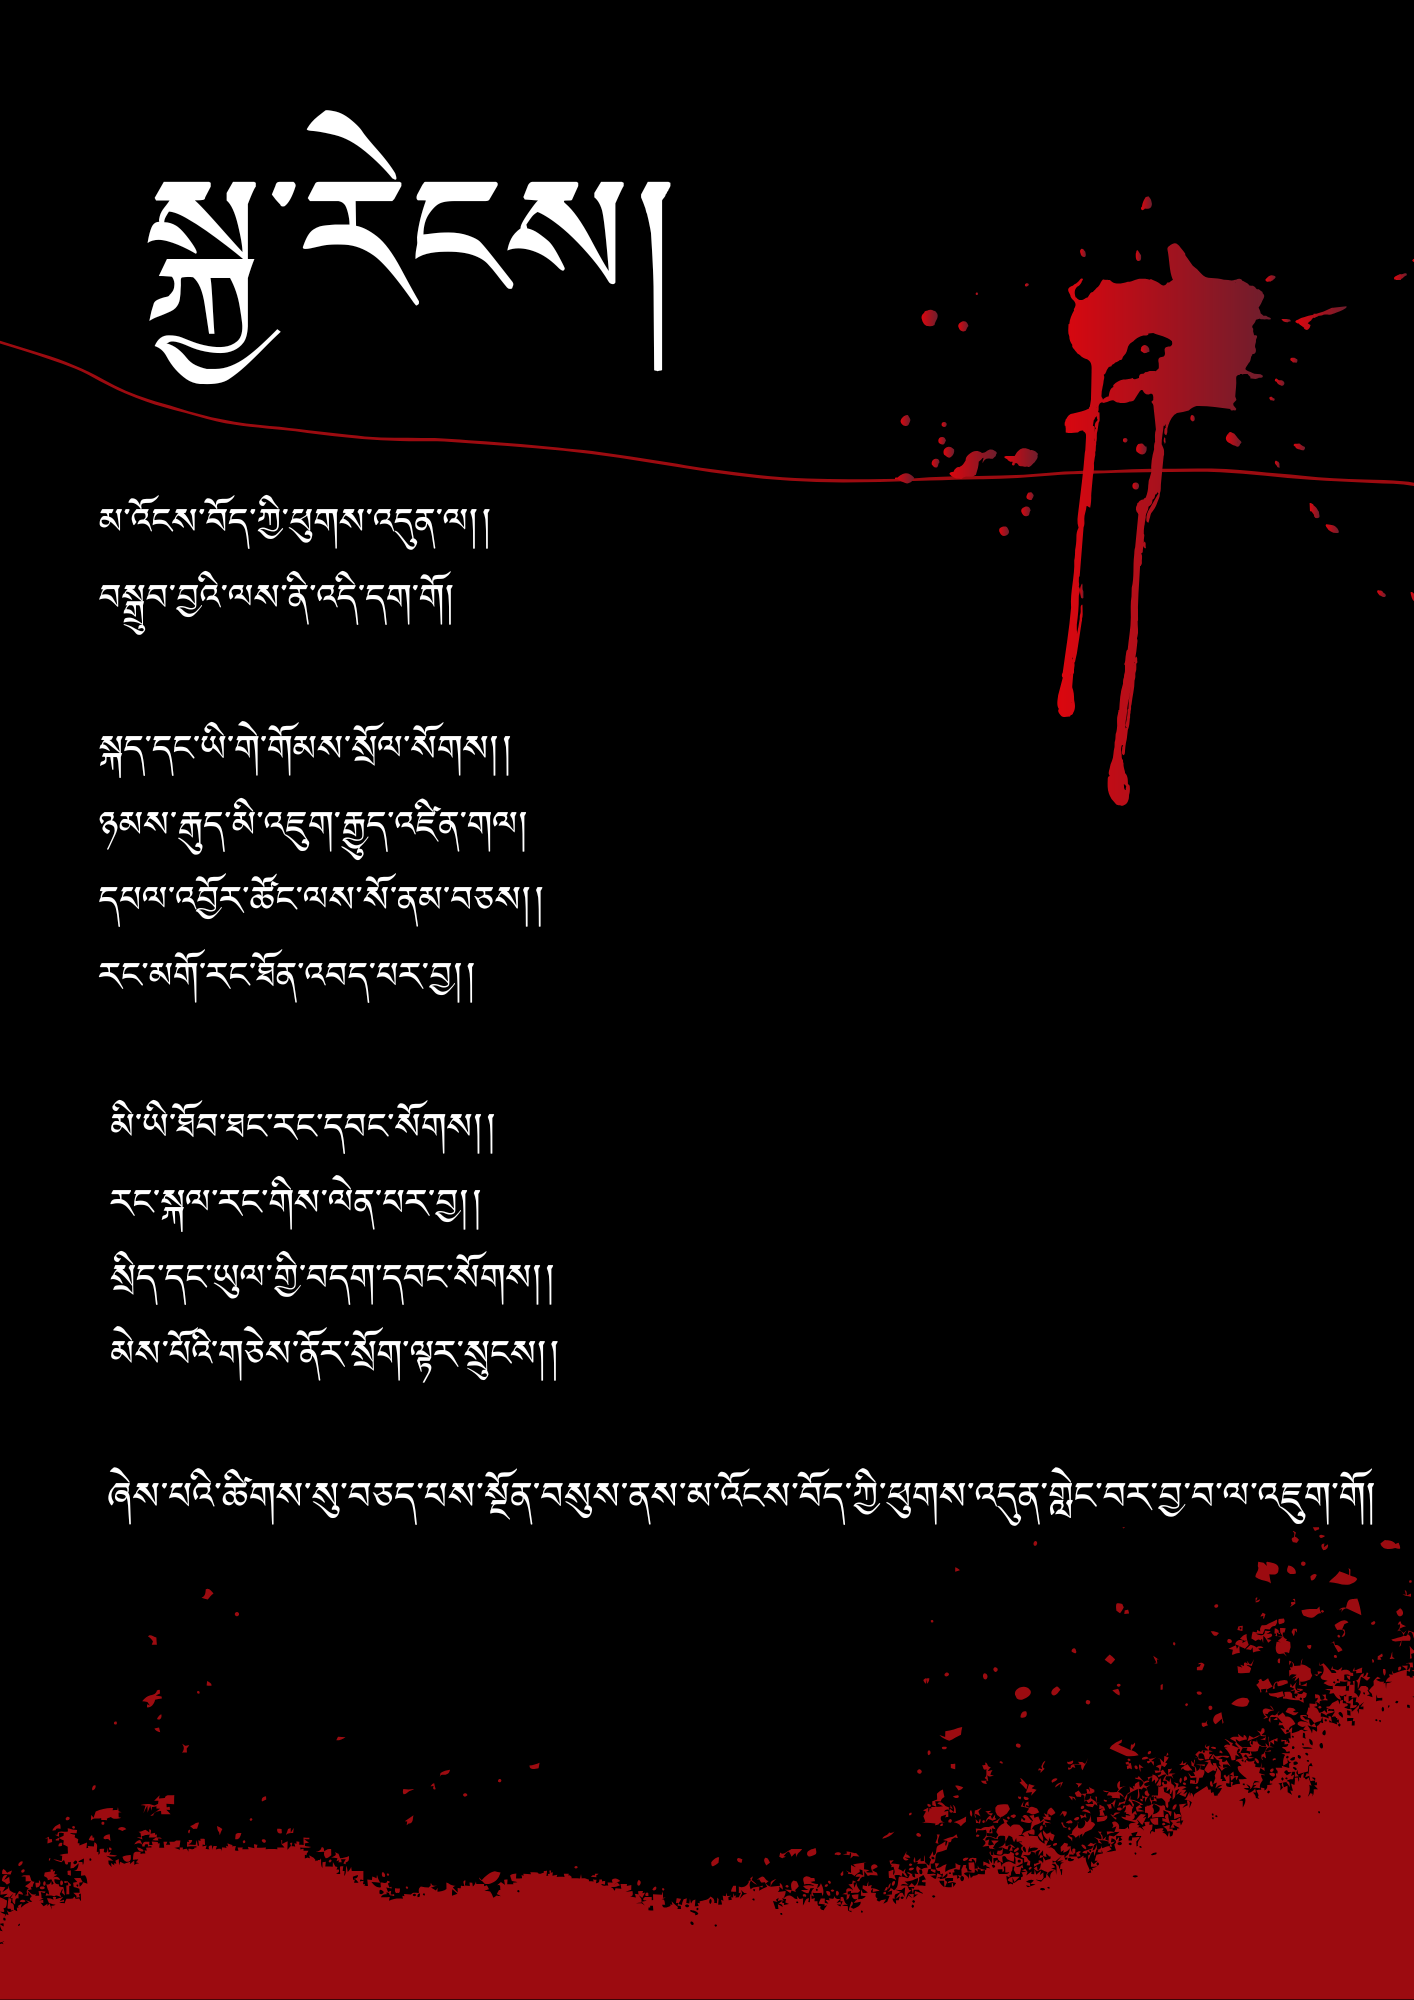 སྐྱ་རེངས།
མ་འོངས་བོད་ཀྱི་ཕུགས་འདུན་ལ།།
བསྒྲུབ་བྱའི་ལས་ནི་འདི་དག་གོ།
སྐད་དང་ཡི་གེ་གོམས་སྲོལ་སོགས།།
ཉམས་རྒུད་མི་འཇུག་རྒྱུད་འཛིན་གལ།
དཔལ་འབྱོར་ཚོང་ལས་སོ་ནམ་བཅས།།
རང་མགོ་རང་ཐོན་འབད་པར་བྱ།།
མི་ཡི་ཐོབ་ཐང་རང་དབང་སོགས།།
རང་སྐལ་རང་གིས་ལེན་པར་བྱ།།
སྲིད་དང་ཡུལ་གྱི་བདག་དབང་སོགས།།
མེས་པོའི་གཅེས་ནོར་སྲོག་ལྟར་སྲུངས།།
ཞེས་པའི་ཚིགས་སུ་བཅད་པས་སྔོན་བསུས་ནས་མ་འོངས་བོད་ཀྱི་ཕུགས་འདུན་གླེང་བར་བྱ་བ་ལ་འཇུག་གོ།